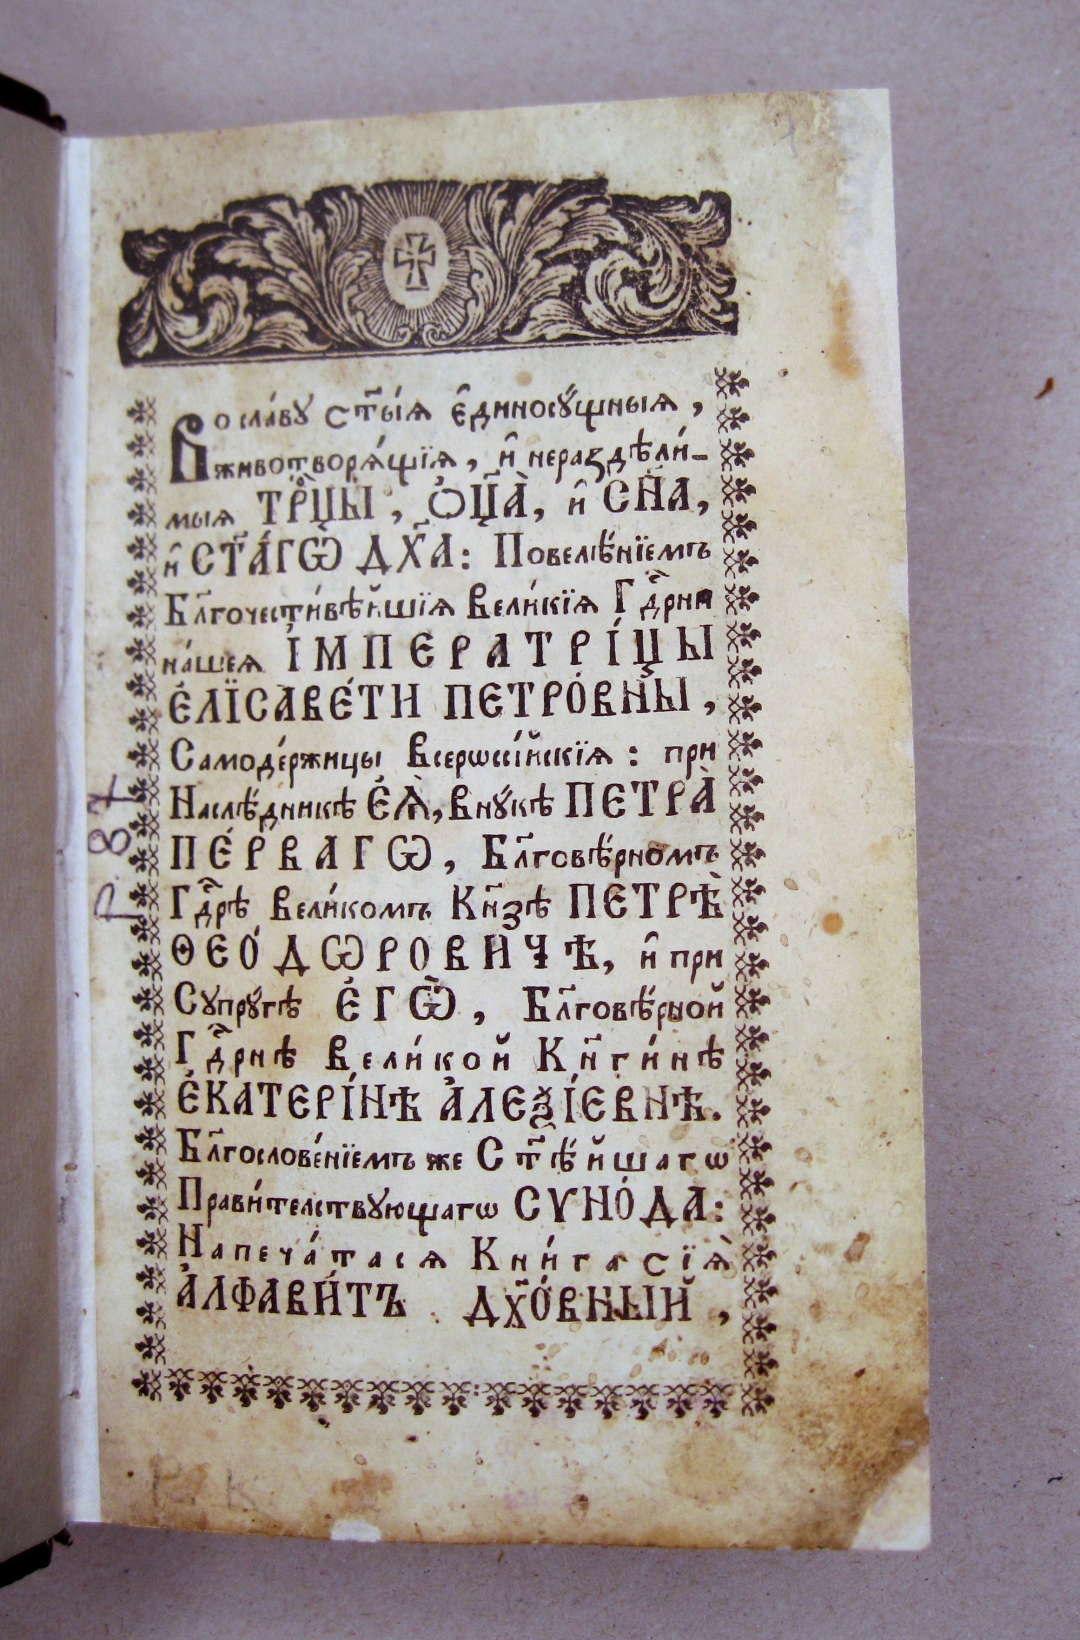 Во сла́вꙋ ст҃ы́ѧ є҆диносꙋ́щныѧ,
животворѧ́щїѧ, и҆ нераздѣли́-
мыѧ ТРⷪ҇ЦЫ, Ѻ҆Ц҃А̀, и҆ СН҃А,
и҆ СТ҃А́ГѠ ДХ҃А: Повелѣ́нїемъ
Бл҃гочести́вѣйшїѧ Вели́кїѧ Гдⷭ҇рни
на́шеѧ І҆МПЕРАТРІ́ЦЫ
Е҆ЛЇСАВЕ́ТИ ПЕТРО́ВНЫ,
Самоде́ржицы Всерѡссі́йскїѧ: при
Наслѣ́дникѣ Е҆Ѧ̀, Внꙋ́кѣ ПЕТРА̀
ПЕ́РВАГѠ, Бл҃говѣ́рномъ
Гдⷭ҇рѣ Вели́комъ Кн҃зѣ ПЕТРѢ̀
ѲЕО́ДѠРОВИЧѢ, и҆ при
Сꙋпрꙋ́гѣ Е҆ГѠ̀, Бл҃говѣ́рной
Гдⷭ҇рнѣ Вели́кой Кн҃ги́нѣ
Е҆КАТЕРІ́НѢ А҆ЛЕѮІ́ЕВНѢ.
Бл҃гослове́нїемъ же Ст҃ѣ́йшагѡ
Прави́телствꙋющагѡ СѴНО́ДА:
Напеча́тасѧ Кни́га сїѧ̀
А҆ЛФАВИ́ТЪ ДХ҃О́ВНЫЙ,
Р. 87